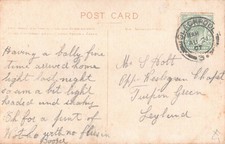 POST CARD
Having a bally fine
time arrived home
last night
so am a bit light
headed and shaky
Oh for a pint of
with no
Mr S Nott
Opp Wesleyan Chapel
Turpin Green
Leyland